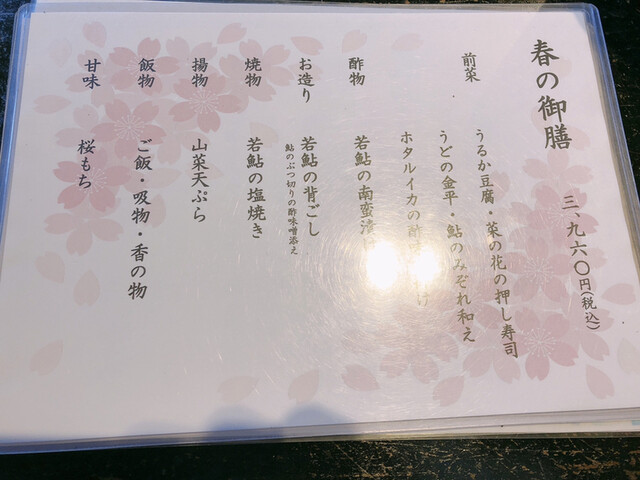 春の御膳
三、九六〇円(税込)
前菜
うるか豆腐・菜の花の押し寿司
うどの金平・鮎のみぞれ和え
ホタルイカの酢
け
酢物
若鮎の南蛮漬
お造り
若鮎の背ごし
鮎のぶつ切りの酢味噌添え
焼物
若鮎の塩焼き
揚物
山菜天ぷら
飯物
ご飯・吸物・香の物
甘味
桜もち